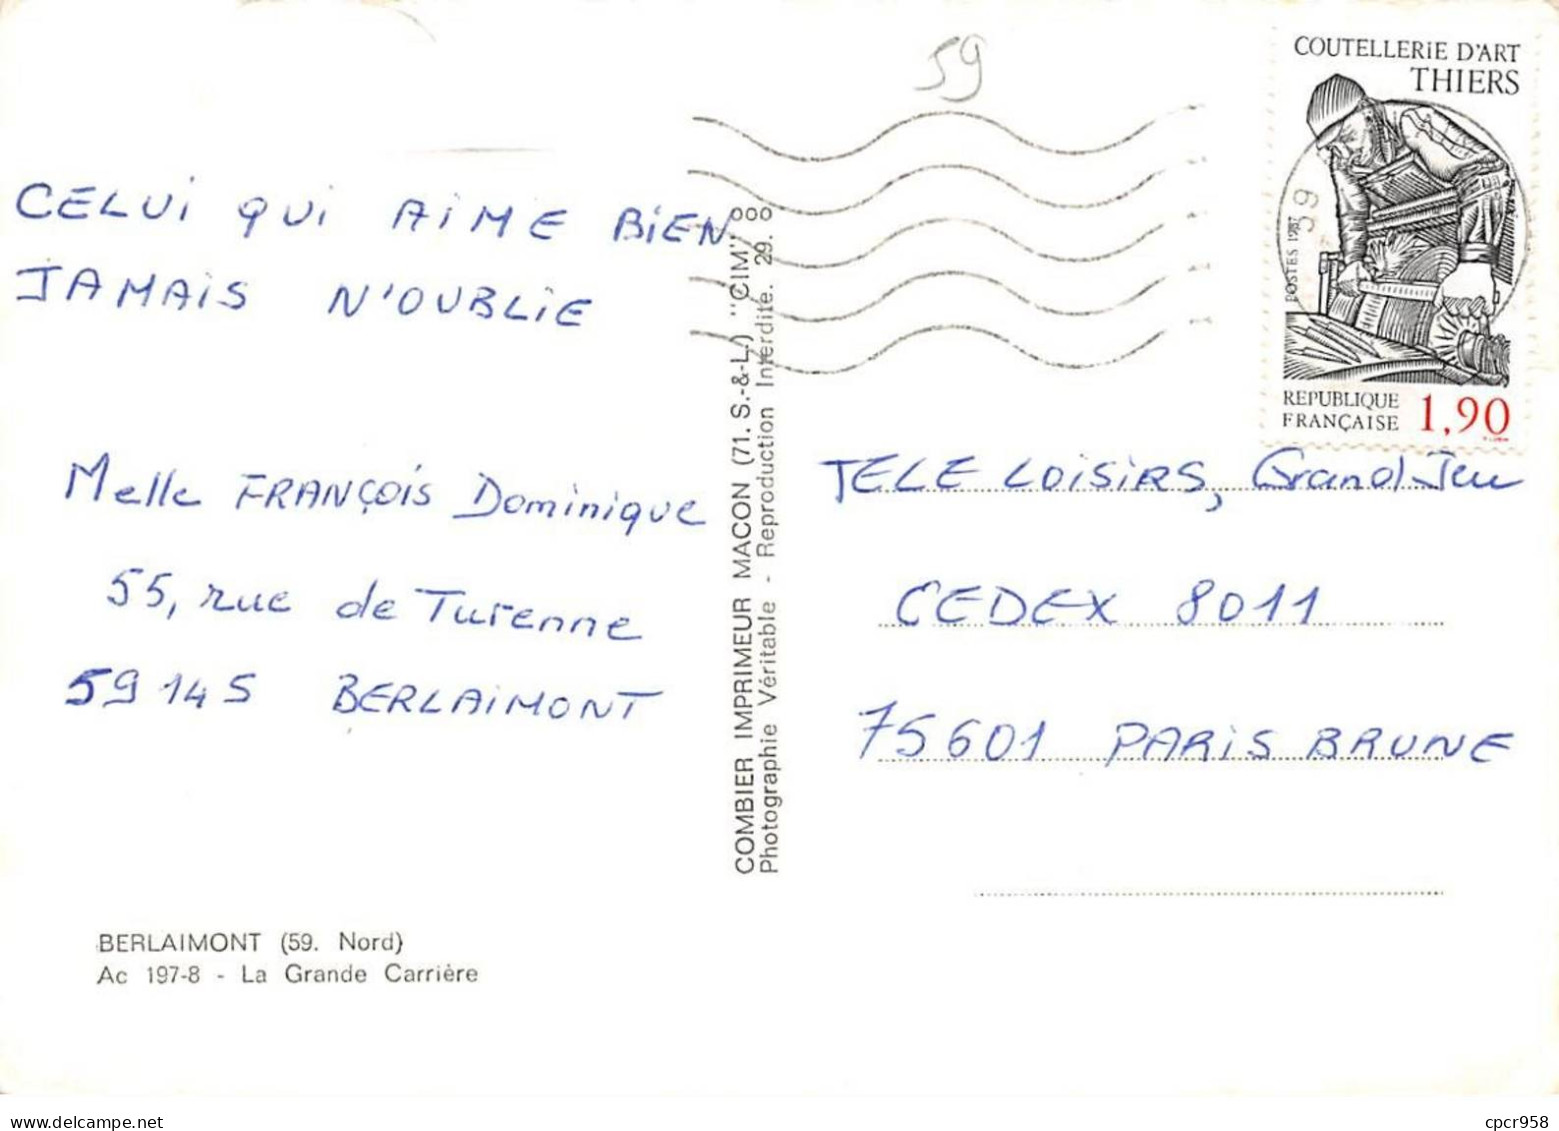 59
COUTELLERiE D'ART
THIERS
59
POSTES 1987
REPUBLIQUE
FRANÇAISE 1,90
CELUi QUi AiME BiEN
JAMAiS N'OUBLiE
Melle FRANÇOiS Dominique
55, rue de Turenne
59145 BERLAiMONT
COMBIER IMPRIMEUR MACON (71. S.-&-L.) "CIM"
Photographie Véritable - Reproduction Interdite. 29.
TELE LOiSiRS, Grand Jeu
CEDEX 8011
75601 PARiS BRUNE
BERLAIMONT (59. Nord)
Ac 197-8 - La Grande Carrière
cpcr958